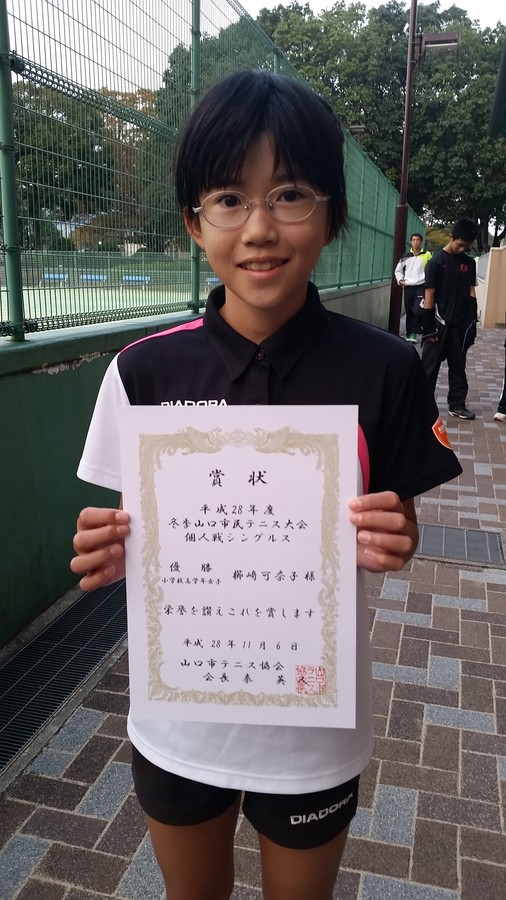 DIADORA
賞状
平成28年度
冬季山口市民テニス大会
個人戦シングルス
優勝
小学校高学年女子
櫛崎可奈子様
栄誉を讃えこれを賞します
平成28年11月6日
山口市テニス協会
会長 秦 英
DIADORA